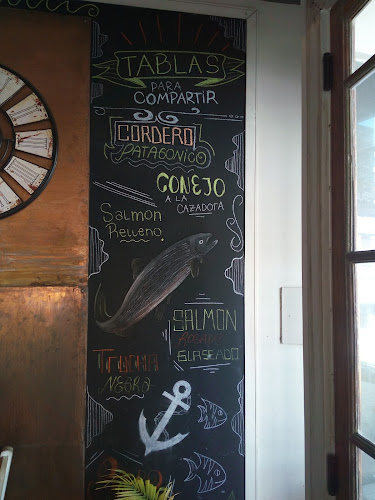 TABLAS
PARA
COMPARTIR
CORDERO
PATAGONICO
CONEJO
A LA
CAZADORA
Salmon
Relleno
SALMON
ROSADO
GLASEADO
TRUCHA
NEGRA